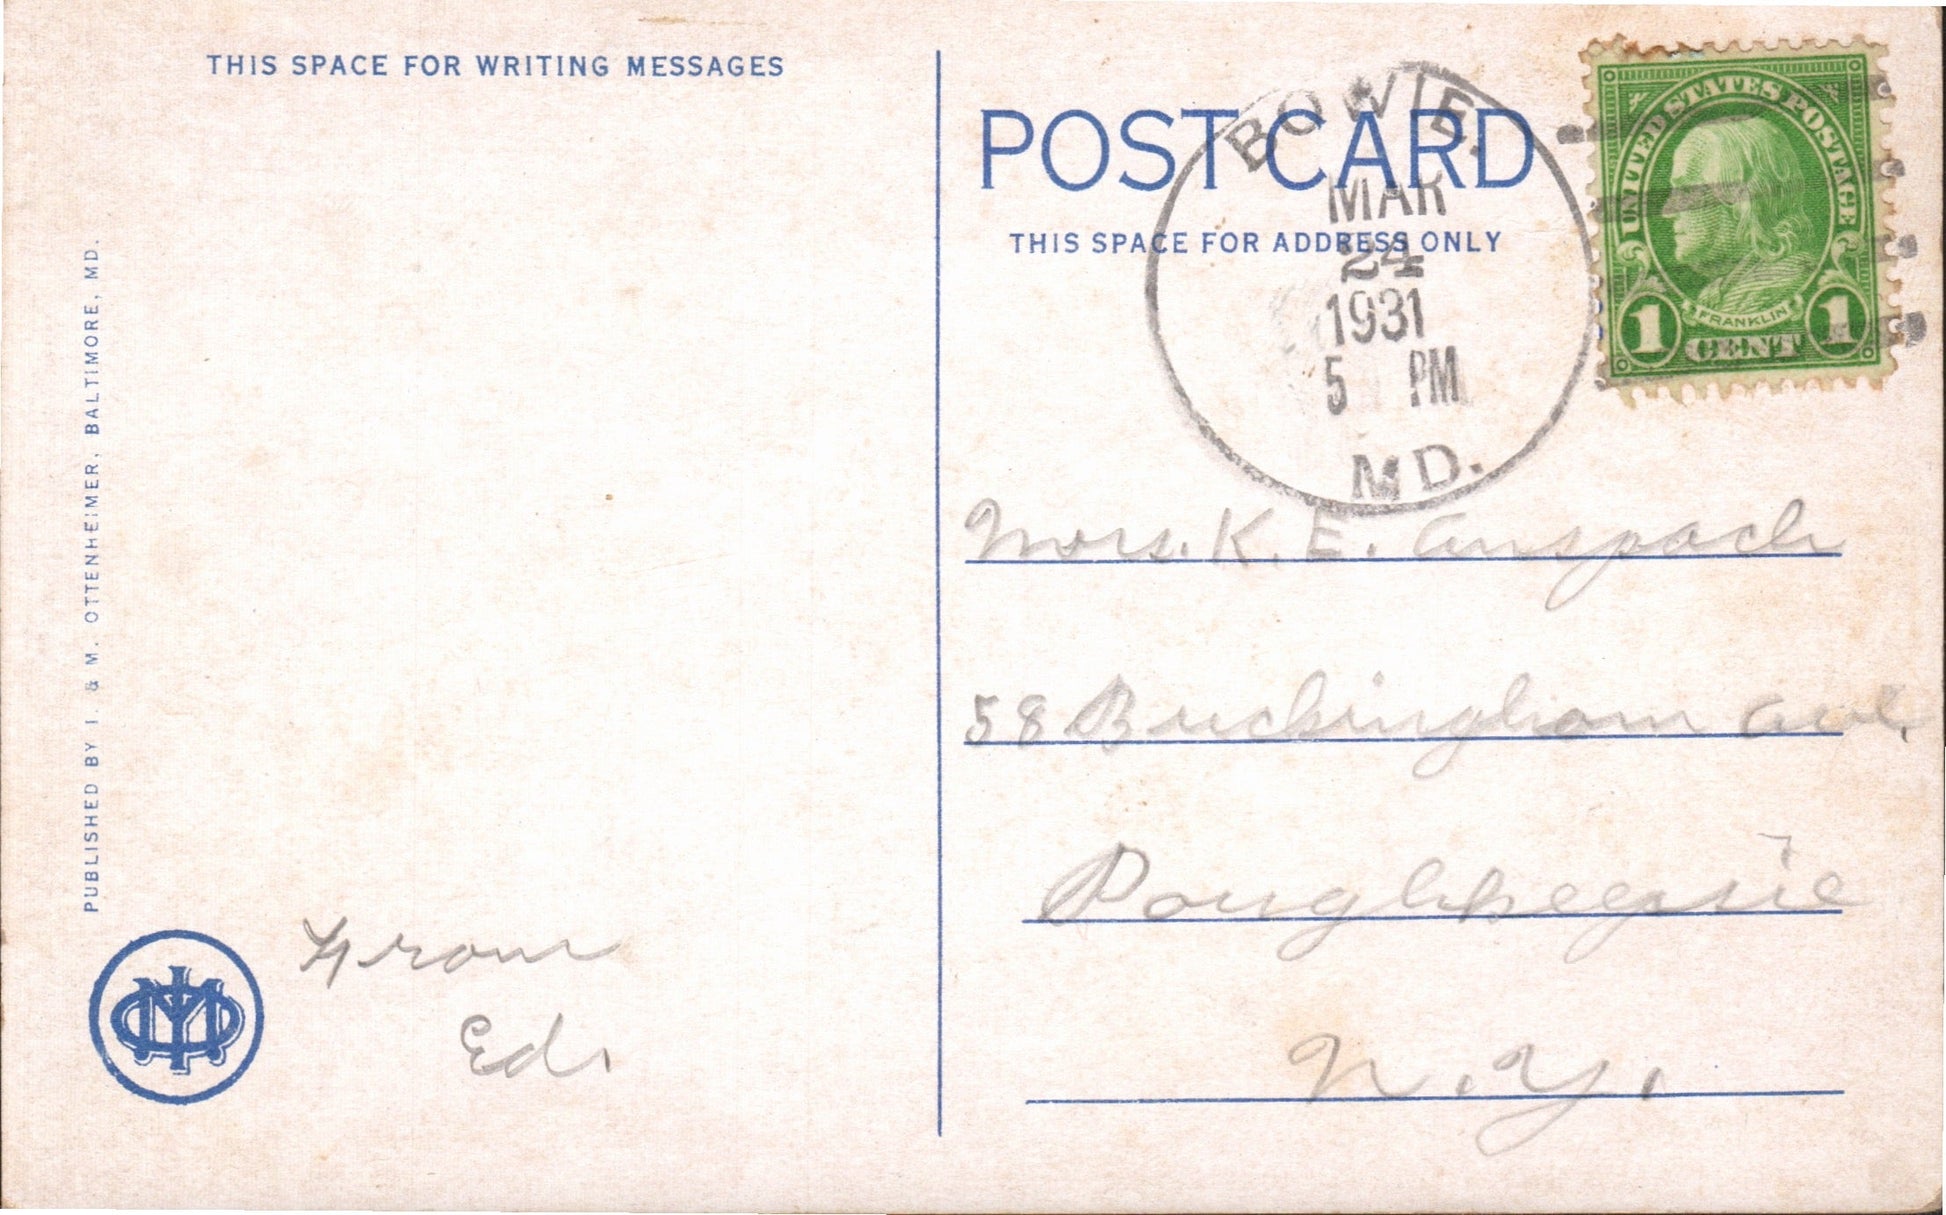 THIS SPACE FOR WRITING MESSAGES
POST CARD
THIS SPACE FOR ADDRESS ONLY
BOWIE.
MAR
24
1931
5 PM
MD.
UNITED STATES POSTAGE
FRANKLIN
1 CENT 1
Mrs. K. E. Anspach
58 Buckingham Ave.
Poughkeepsie
N.Y.
From
Ed.
PUBLISHED BY I. & M. OTTENHEIMER, BALTIMORE, MD.